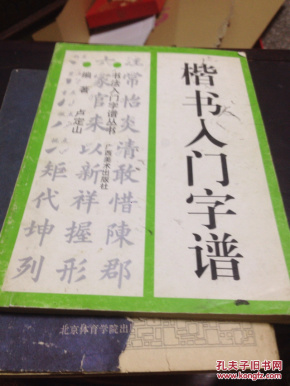 楷书入门字谱
书法入门字谱丛书
编著 卢定山
广西美术出版社
注常怡炎清敢惜陳郡
六家官来以新祥握形
矩代坤列
北京体育学院出
孔夫子旧书网